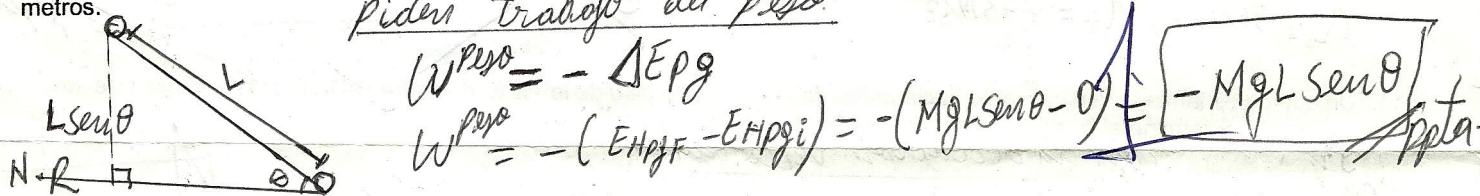 metros.
Piden trabajo del peso
W^peso = - ΔEpg
W^peso = - (EHpgF - EHpgi) = -(MgLsenθ - 0) = -MgLsenθ Rpta.
L
Lsenθ
N.R
θ